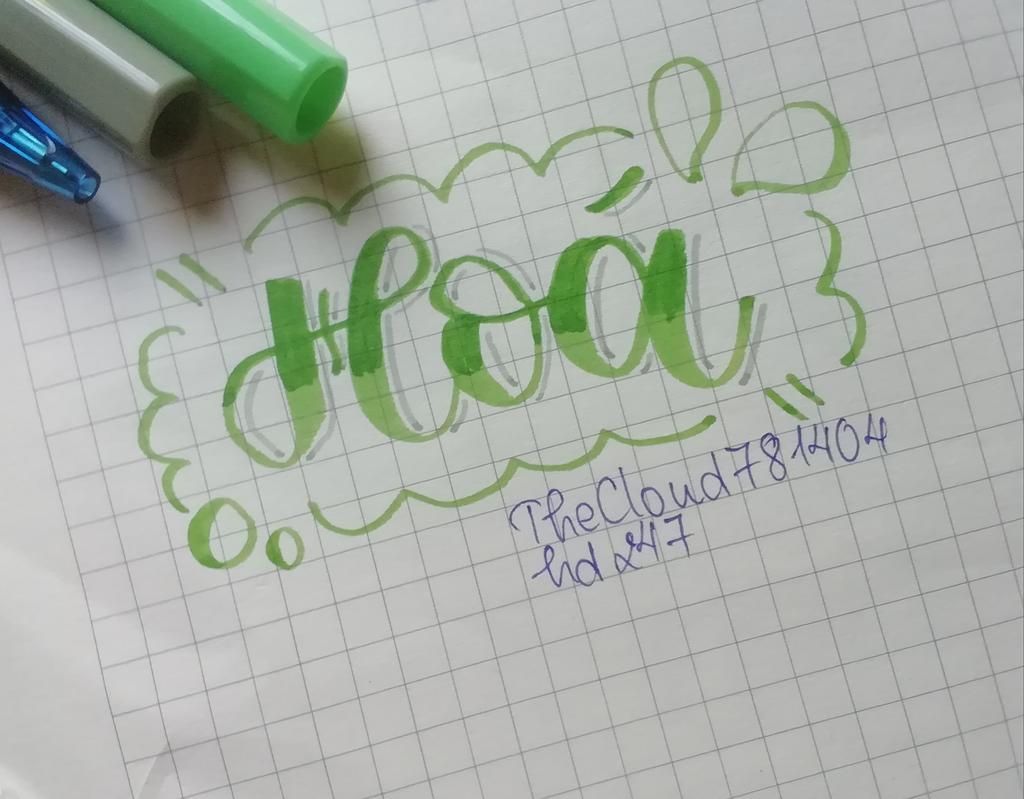 Hoá
TheCloud781404
hd247